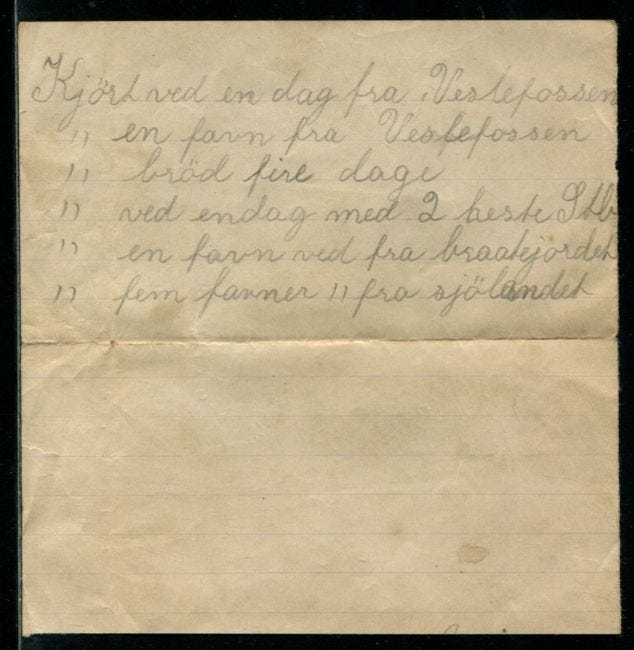 Kjört ved en dag fra Vestefossen
" en favn fra Vestefossen
" bröd fire dage
" ved endag med 2 heste Stb
" en favn ved fra braatejordet
" fem favner " fra sjölandet